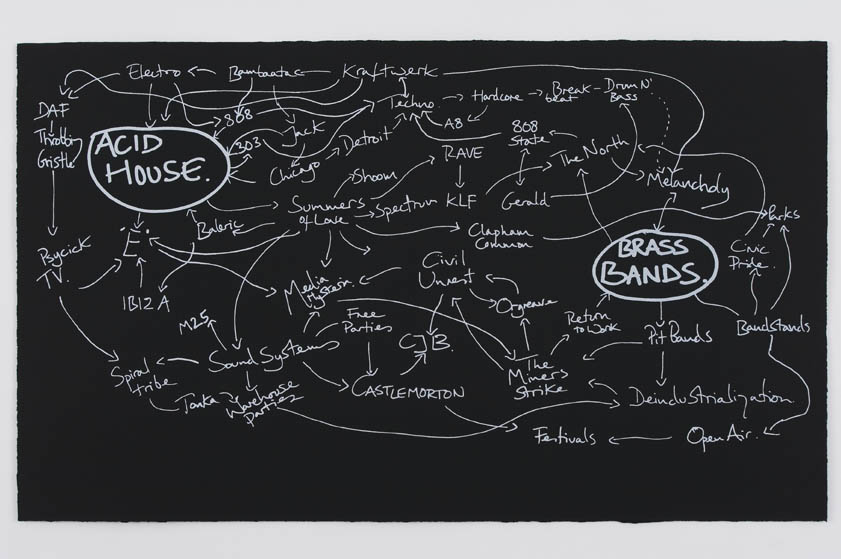 Electro
Bambaataa
Kraftwerk
DAF
808
Techno
Hardcore
Break
beat
Drum N'
Bass
Throbbing
Gristle
ACID
HOUSE.
303
Jack
Detroit
A8
808
State
The North
Chicago
Shoom
RAVE
Melancholy
Summers
of Love
Spectrum
KLF
Gerald
Parks
Psycick
TV.
'E'.
Baleric
Clapham
Common
BRASS
BANDS.
Civic
Pride.
IBIZA
Media
Hysteria.
Civil
Unrest
Orgreave
M25
Free
Parties
CJB.
Return
to Work
Pit Bands
Bandstands
Spiral
tribe
Sound Systems
The
Miners
Strike
Tonka
Warehouse
Parties
CASTLEMORTON
Deindustrialization
Festivals
Open Air.